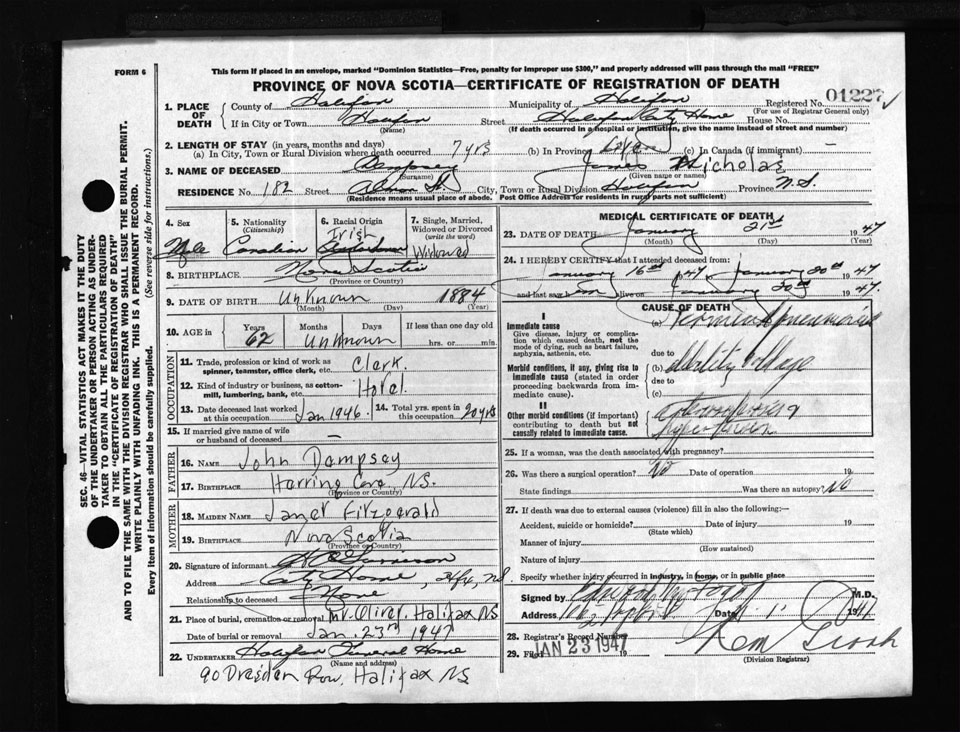 FORM 6
This form if placed in an envelope, marked "Dominion Statistics—Free, penalty for improper use $300," and properly addressed will pass through the mail "FREE"
PROVINCE OF NOVA SCOTIA—CERTIFICATE OF REGISTRATION OF DEATH
01227
1. PLACE OF DEATH
County of Halifax Municipality of Halifax Registered No.
(For use of Registrar General only)
If in City or Town Halifax Street Halifax City Home House No.
(Name) (If death occurred in a hospital or institution, give the name instead of street and number)
2. LENGTH OF STAY (in years, months and days)
(a) In City, Town or Rural Division where death occurred 7 yrs (b) In Province (c) In Canada (if immigrant) —
3. NAME OF DECEASED Dempsey James Nicholas
(Surname) (Given name or names)
RESIDENCE No. 182 Street Almon St. City, Town or Rural Division Halifax Province N.S.
(Residence means usual place of abode. Post Office Address for residents in rural parts not sufficient)
4. Sex Male
5. Nationality (Citizenship) Canadian
6. Racial Origin Irish
7. Single, Married, Widowed or Divorced (write the word) Widowed
8. BIRTHPLACE Nova Scotia
(Province or Country)
9. DATE OF BIRTH unknown 1884
(Month) (Day) (Year)
10. AGE in Years Months Days If less than one day old
62 unknown hrs. or min.
OCCUPATION
11. Trade, profession or kind of work as spinner, teamster, office clerk, etc. Clerk.
12. Kind of industry or business, as cotton-mill, lumbering, bank, etc. Hotel
13. Date deceased last worked at this occupation Jan 1946. 14. Total yrs. spent in this occupation 20 yrs
15. If married give name of wife or husband of deceased —
FATHER
16. NAME John Dempsey
17. BIRTHPLACE Herring Cove, NS.
(Province or Country)
MOTHER
18. MAIDEN NAME Janet Fitzgerald
19. BIRTHPLACE Nova Scotia
(Province or Country)
20. Signature of informant
Address City Home, Hfx, NS
Relationship to deceased None
21. Place of burial, cremation or removal Mt. Olivet, Halifax NS
Date of burial or removal Jan. 23rd 1947
22. UNDERTAKER Halifax Funeral Home
(Name and address)
90 Dresden Row, Halifax NS
MEDICAL CERTIFICATE OF DEATH
23. DATE OF DEATH January 21st 1947
(Month) (Day) (Year)
24. I HEREBY CERTIFY that I attended deceased from:
January 16th 1947 January 20th 1947
and last saw him alive on January 20 1947.
CAUSE OF DEATH
I
Immediate cause
Give disease, injury or complication which caused death, not the mode of dying, such as heart failure, asphyxia, asthenia, etc.
(a) Terminal pneumonia
due to
Morbid conditions, if any, giving rise to immediate cause (stated in order proceeding backwards from immediate cause).
(b)
due to
(c)
II
Other morbid conditions (if important) contributing to death but not causally related to immediate cause.
25. If a woman, was the death associated with pregnancy?
26. Was there a surgical operation? No Date of operation 19
State findings Was there an autopsy? No
27. If death was due to external causes (violence) fill in also the following:—
Accident, suicide or homicide? Date of injury 19
(State which)
Manner of injury
(How sustained)
Nature of injury
Specify whether injury occurred in industry, in home, or in public place
Signed by M.D.
Address Date 19
28. Registrar's Record Number
29. Filed JAN 23 1947 19
(Division Registrar)
SEC. 46—VITAL STATISTICS ACT MAKES IT THE DUTY OF THE UNDERTAKER OR PERSON ACTING AS UNDERTAKER TO OBTAIN ALL THE PARTICULARS REQUIRED IN THE "CERTIFICATE OF REGISTRATION OF DEATH"
AND TO FILE THE SAME WITH THE DIVISION REGISTRAR WHO SHALL ISSUE THE BURIAL PERMIT.
WRITE PLAINLY WITH UNFADING INK. THIS IS A PERMANENT RECORD.
Every item of information should be carefully supplied. (See reverse side for instructions.)